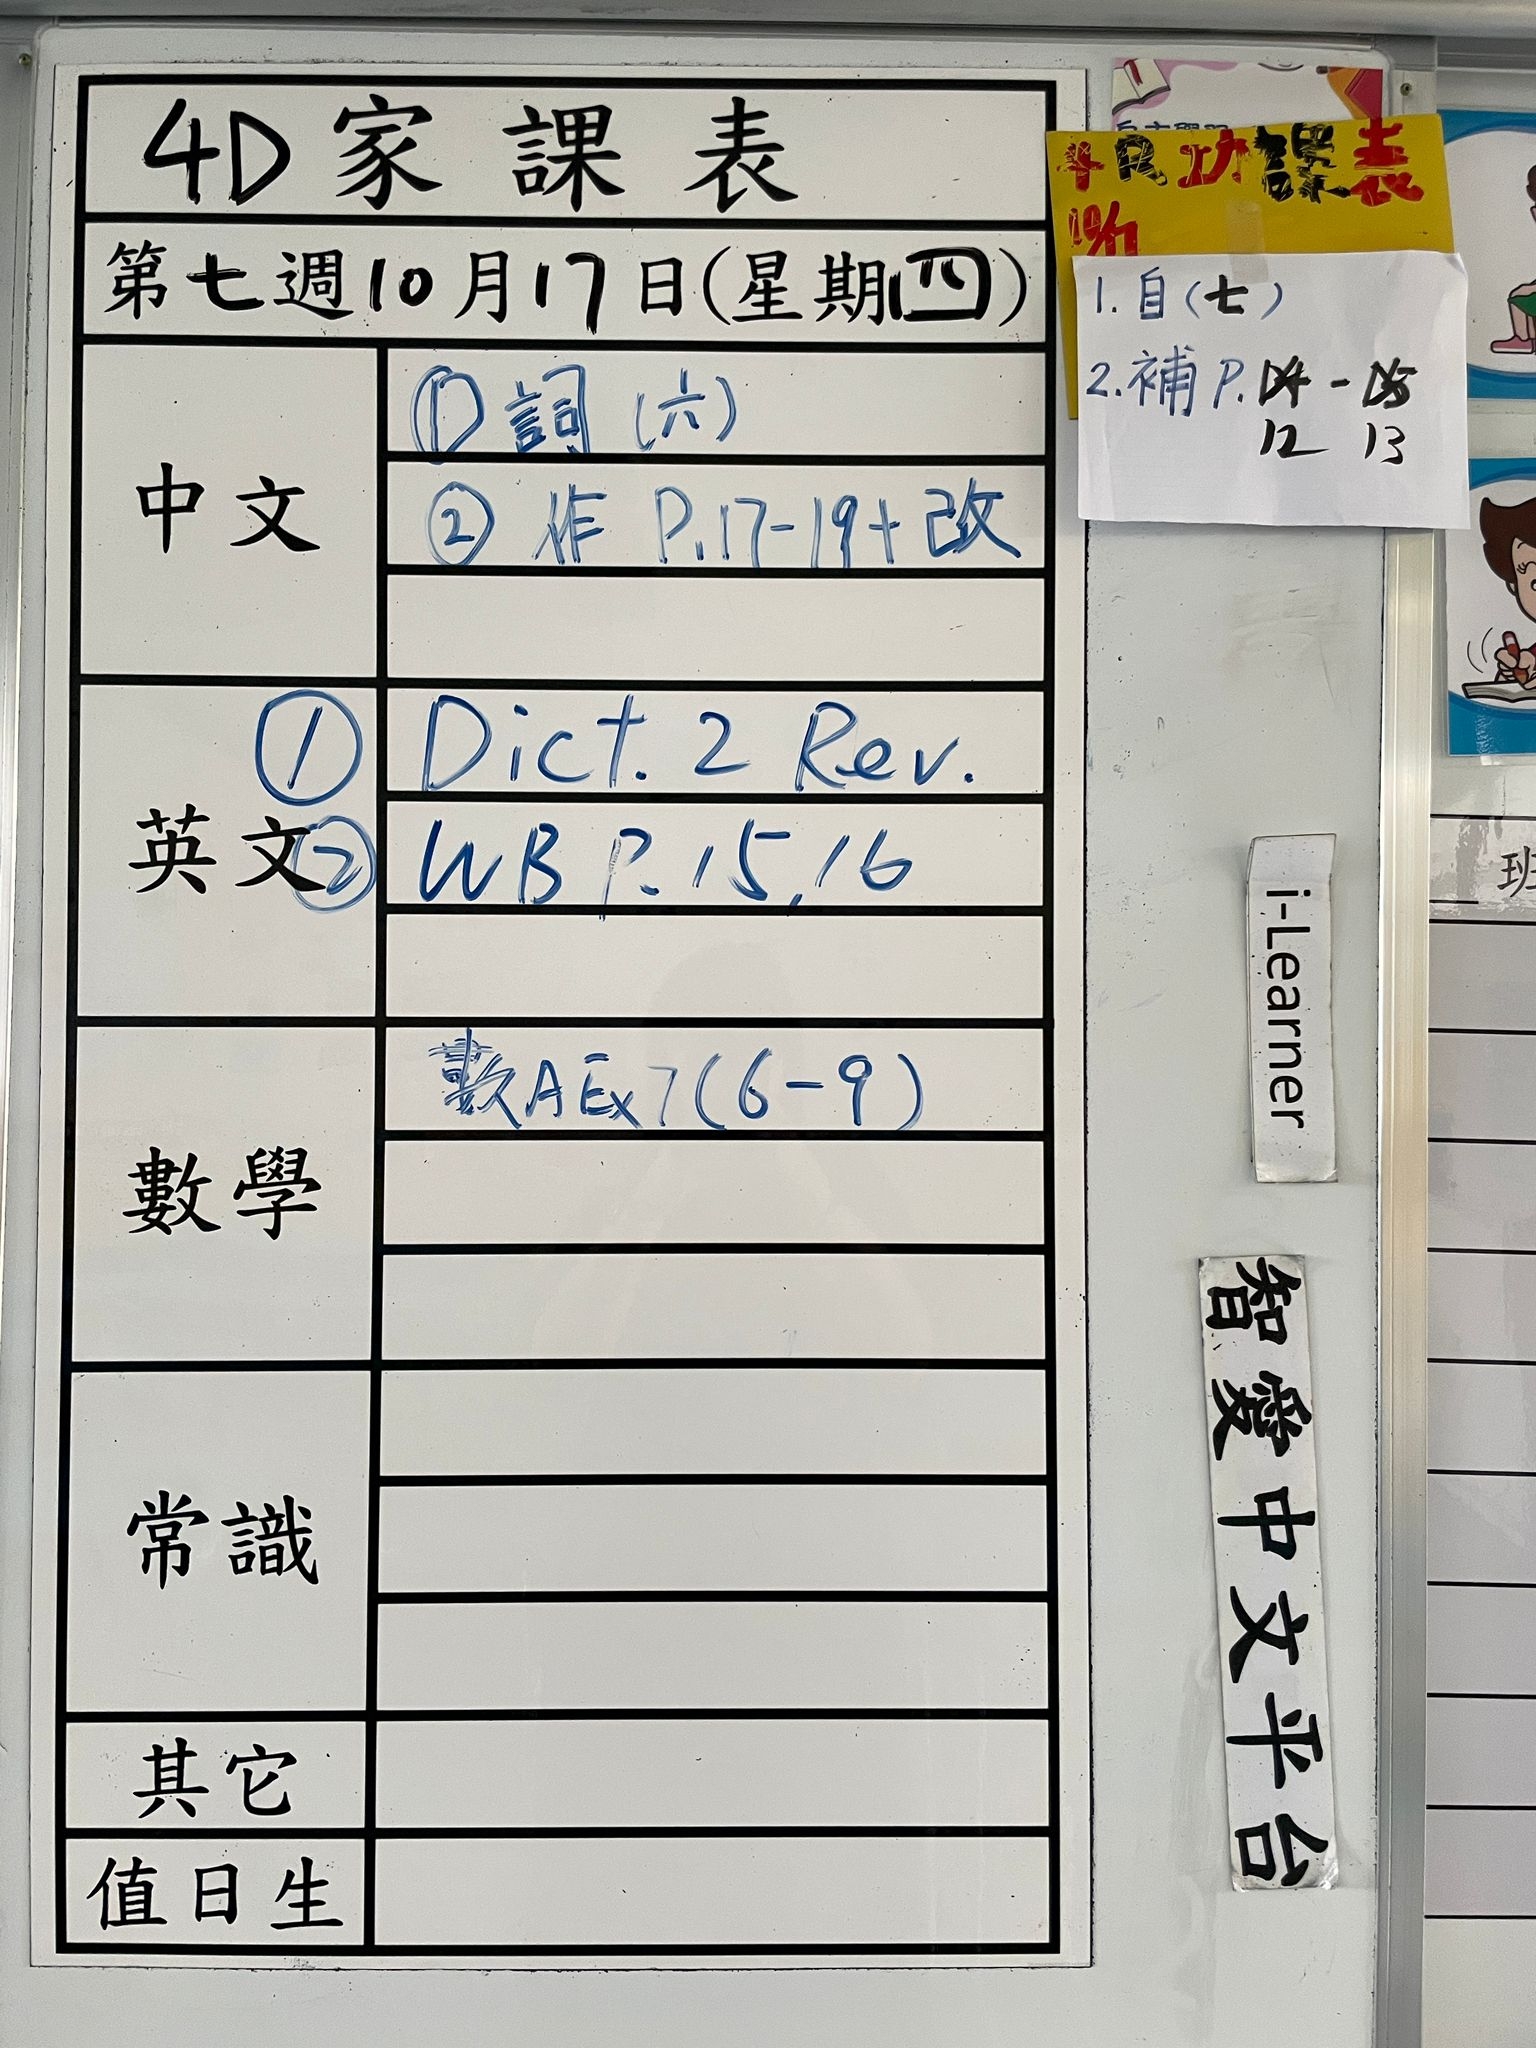 4D家課表
第七週10月17日(星期四)
中文
① 詞(六)
② 作 P.17-19+改
英文
① Dict. 2 Rev.
② WB P.15,16
數學
數AEx7(6-9)
常識
其它
值日生
功課表
1. 自(七)
2. 補 P. 14 - 15
12 13
i-Learner
智愛中文平台
班